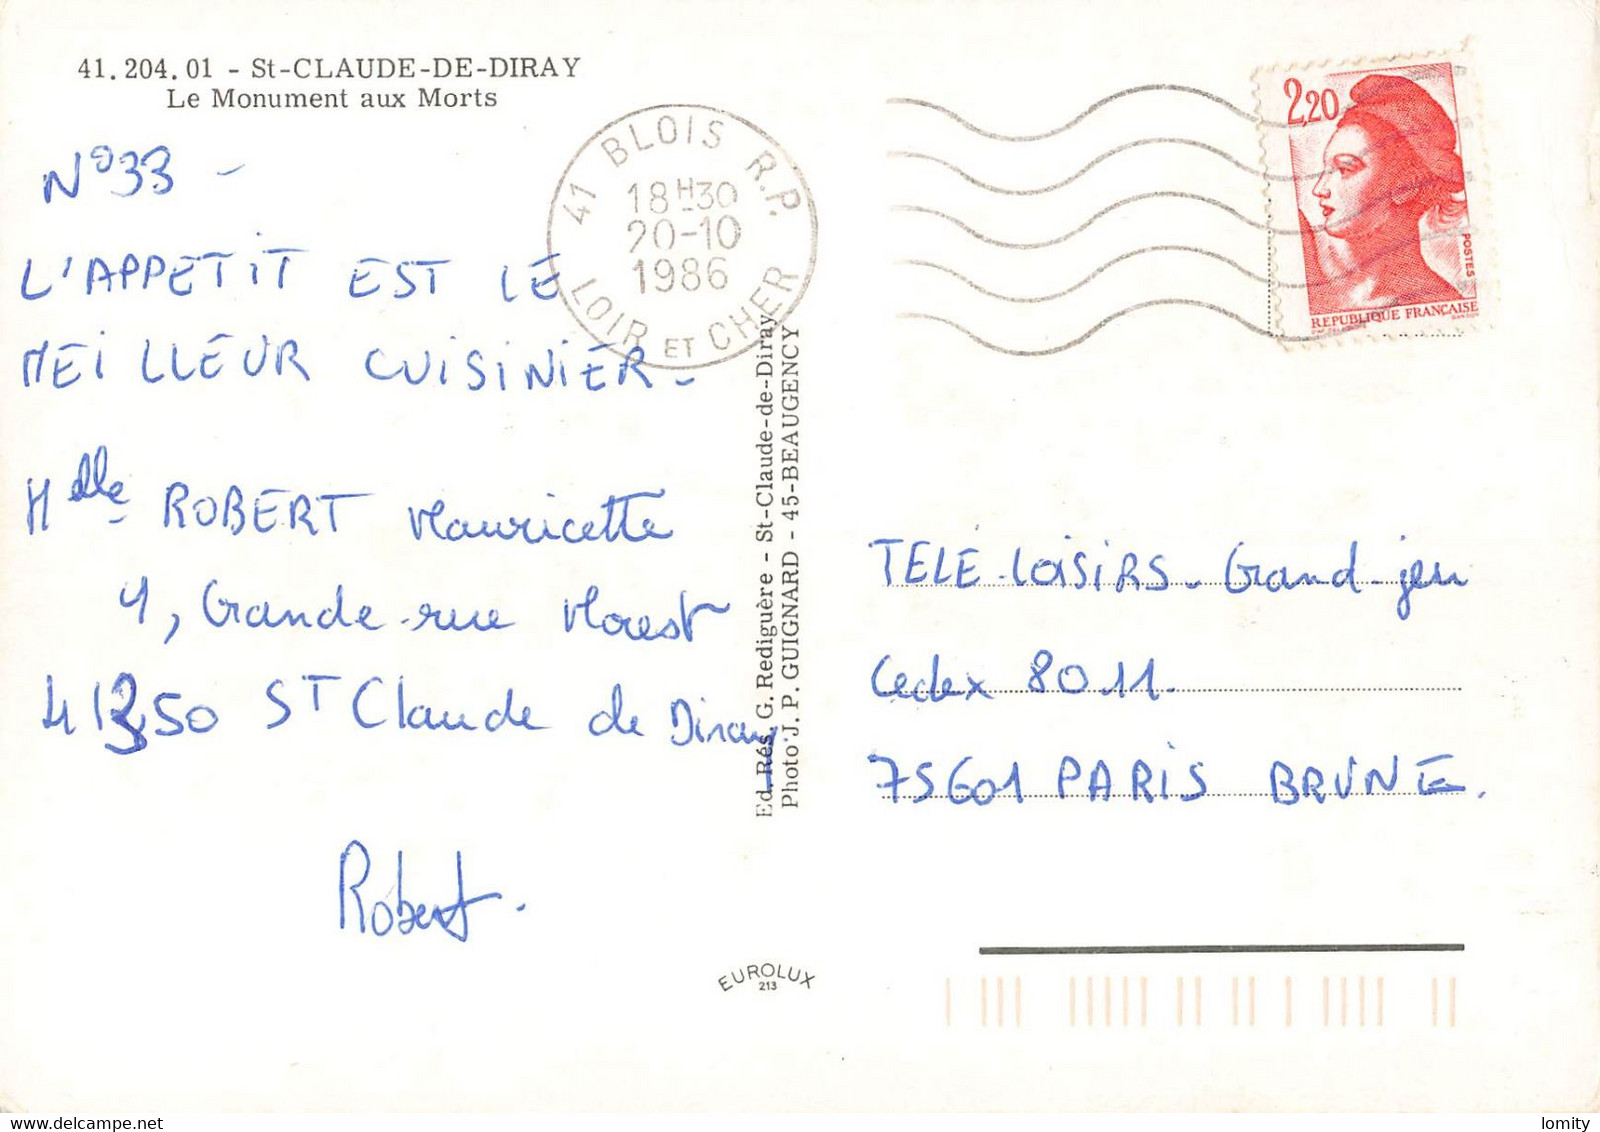 41.204.01 - St-CLAUDE-DE-DIRAY
Le Monument aux Morts
N°33 -
L'APPETIT EST LE
MEILLEUR CUISINIER -
Melle ROBERT Mauricette
4, Grande rue Morest
41350 ST Claude de Diray.
Robert.
41 BLOIS R.P.
18H30
20-10
1986
LOIR ET CHER
Ed. Rés. G. Rediguère - St-Claude-de-Diray
Photo J. P. GUIGNARD - 45-BEAUGENCY
EUROLUX
213
2,20
POSTES
REPUBLIQUE FRANÇAISE
TELE-LOISIRS - Grand-jeu
Cedex 8011.
75601 PARIS BRUNE.
delcampe.net
lomity